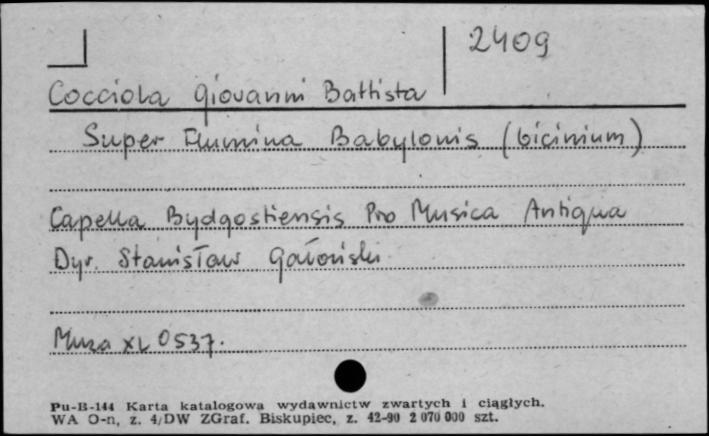 2409
Cocciola Giovanni Battista
Super Flumina Babylonis (bicinium)
Capella Bydgostiensis Pro Musica Antiqua
Dyr. Stanisław Gałoński
Muza XL 0537.
Pu-B-144 Karta katalogowa wydawnictw zwartych i ciągłych.
WA O-n, z. 4/DW ZGraf. Biskupiec, z. 42-90 2 070 000 szt.